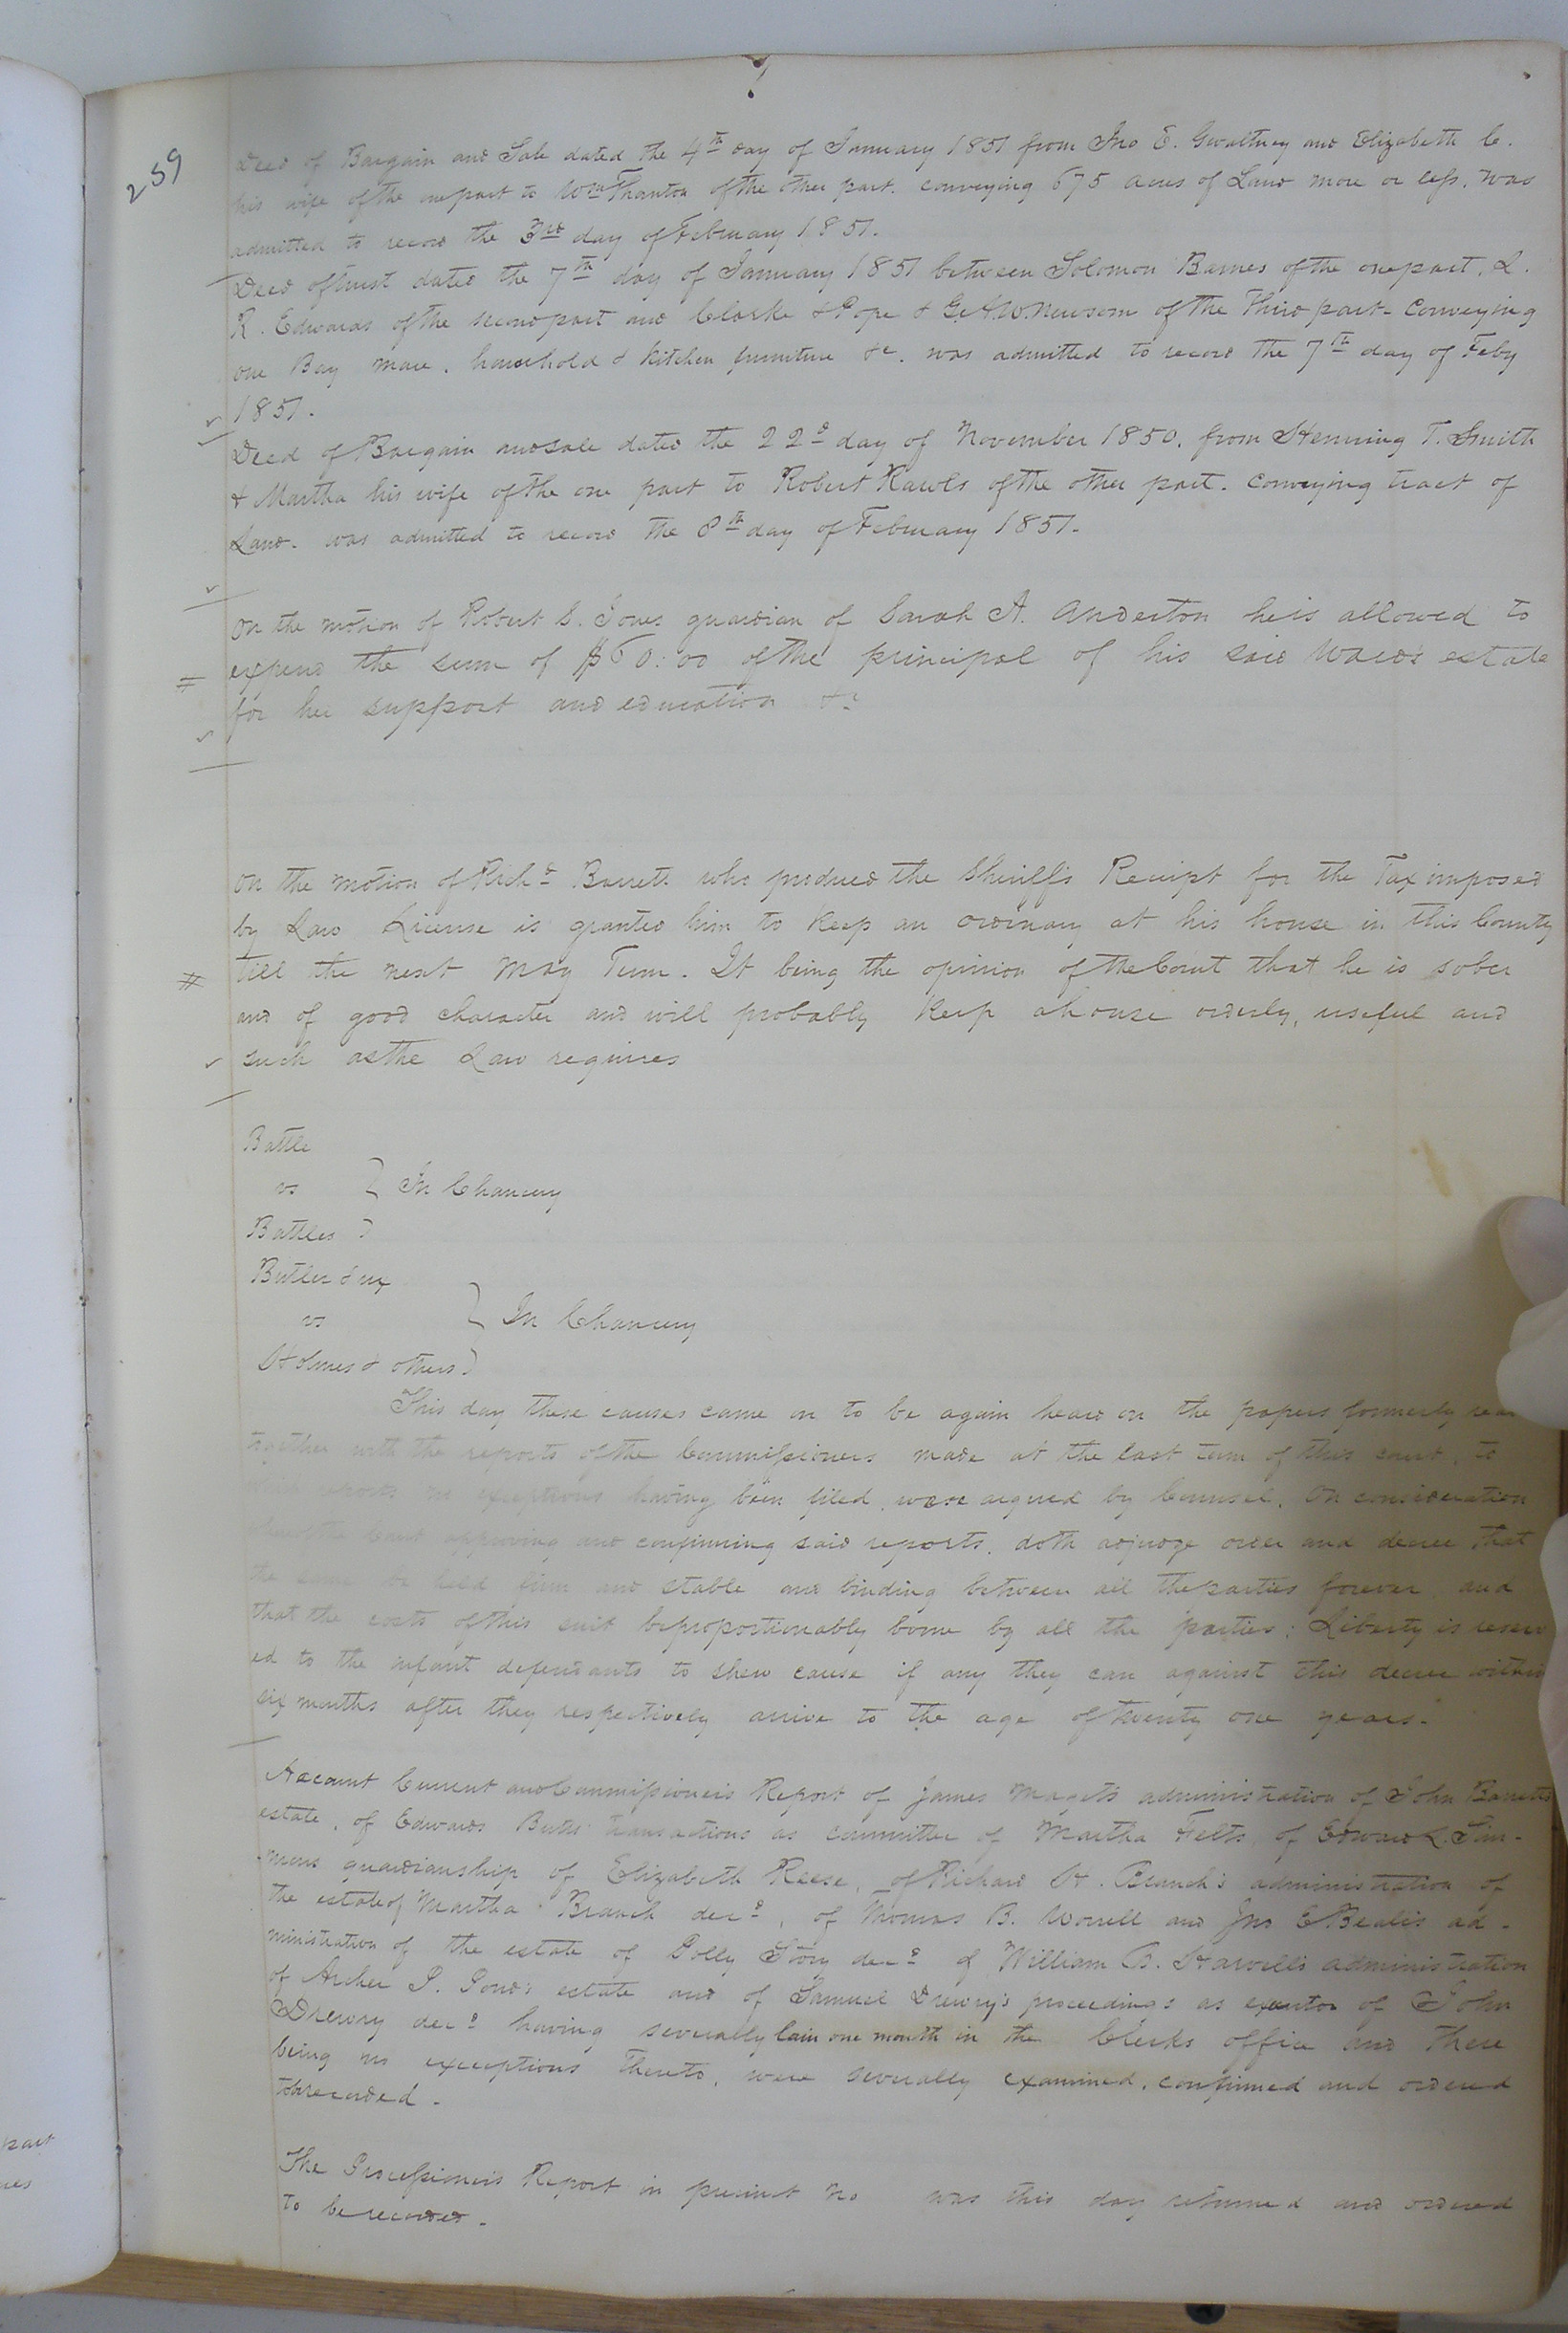 259
Deed of Bargain and Sale dated the 4th day of January 1851 from Jno E. Gwaltney and Elizabeth C.
his wife of the onepart to Wm Thanton of the other part. conveying 675 acres of Land more or less. was
admitted to record the 3rd day of February 1851.
Deed of trust dated the 7th day of January 1851 between Solomon Barnes of the one part, L.
R. Edwards of the second part and Clarke & Pope & G.A.W. Newsom of the Third part - Conveying
one Bay mare, household & kitchen furniture &c. was admitted to record the 7th day of Feby
1851.
Deed of Bargain and Sale dated the 22d day of November 1850. from Henning T. Smith
& Martha his wife of the one part to Robert Rawls of the other part. conveying tract of
Land. was admitted to record the 8th day of February 1851.
On the motion of Robert S. Jones guardian of Sarah A. Anderton he is allowed to
expend the sum of $60:00 of the principal of his said Wards estate
for her support and education &c
On the motion of Richd Barrett who produced the Sheriffs Receipt for the Tax imposed
by Law License is granted him to keep an ordinary at his house in this County
till the next May Term. It being the opinion of the Court that he is sober
and of good character and will probably keep a house orderly, useful and
such as the Law requires
Battle
vs } In Chancery
Battles
Butler & ux
vs } In Chancery
Holmes & others
This day these causes came on to be again heard on the papers formerly read
together with the reports of the Commissioners made at the last term of this court, to
which reports no exceptions having been filed, were argued by Counsel. On consideration
whereof the Court approving and confirming said reports. doth adjudge order and decree that
the same be held firm and stable and binding between all the parties forever and
that the costs of this suit be proportionably borne by all the parties: Liberty is reserv
ed to the infant defendants to shew cause if any they can against this decree within
six months after they respectively arrive to the age of twenty one years.
Account Current and Commissioners Report of James Magets administration of John Barretts
estate, of Edwards Butts transactions as committee of Martha Felts, of Edward L. Sim-
mons guardianship of Elizabeth Reese, of Richard H. Branch's administration of
the estate of Martha Branch decd, of Thomas B. Worrell and Jno E Beale's ad-
ministration of the estate of Polly Story decd of William B. Harvell's administration
of Archer P. estate and of Samuel Drewry's proceedings as executor of John
Drewry decd having severally lain one month in the Clerks office and there
being no exceptions thereto, were severally examined, confirmed and ordered
to be recorded.
The Processioners Report in precinct No was this day returned and ordered
to be recorded.
part